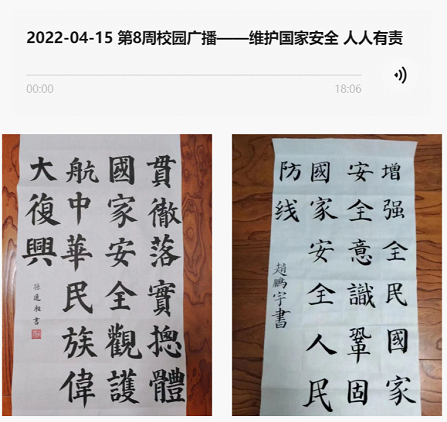 2022-04-15 第8周校园广播——维护国家安全 人人有责
00:00
18:06
貫徹落實摠體
國家安全觀護
航中華民族偉
大復興
增强全民國家
安全意識鞏固
國家安全人民
防线
趙鵬宇書